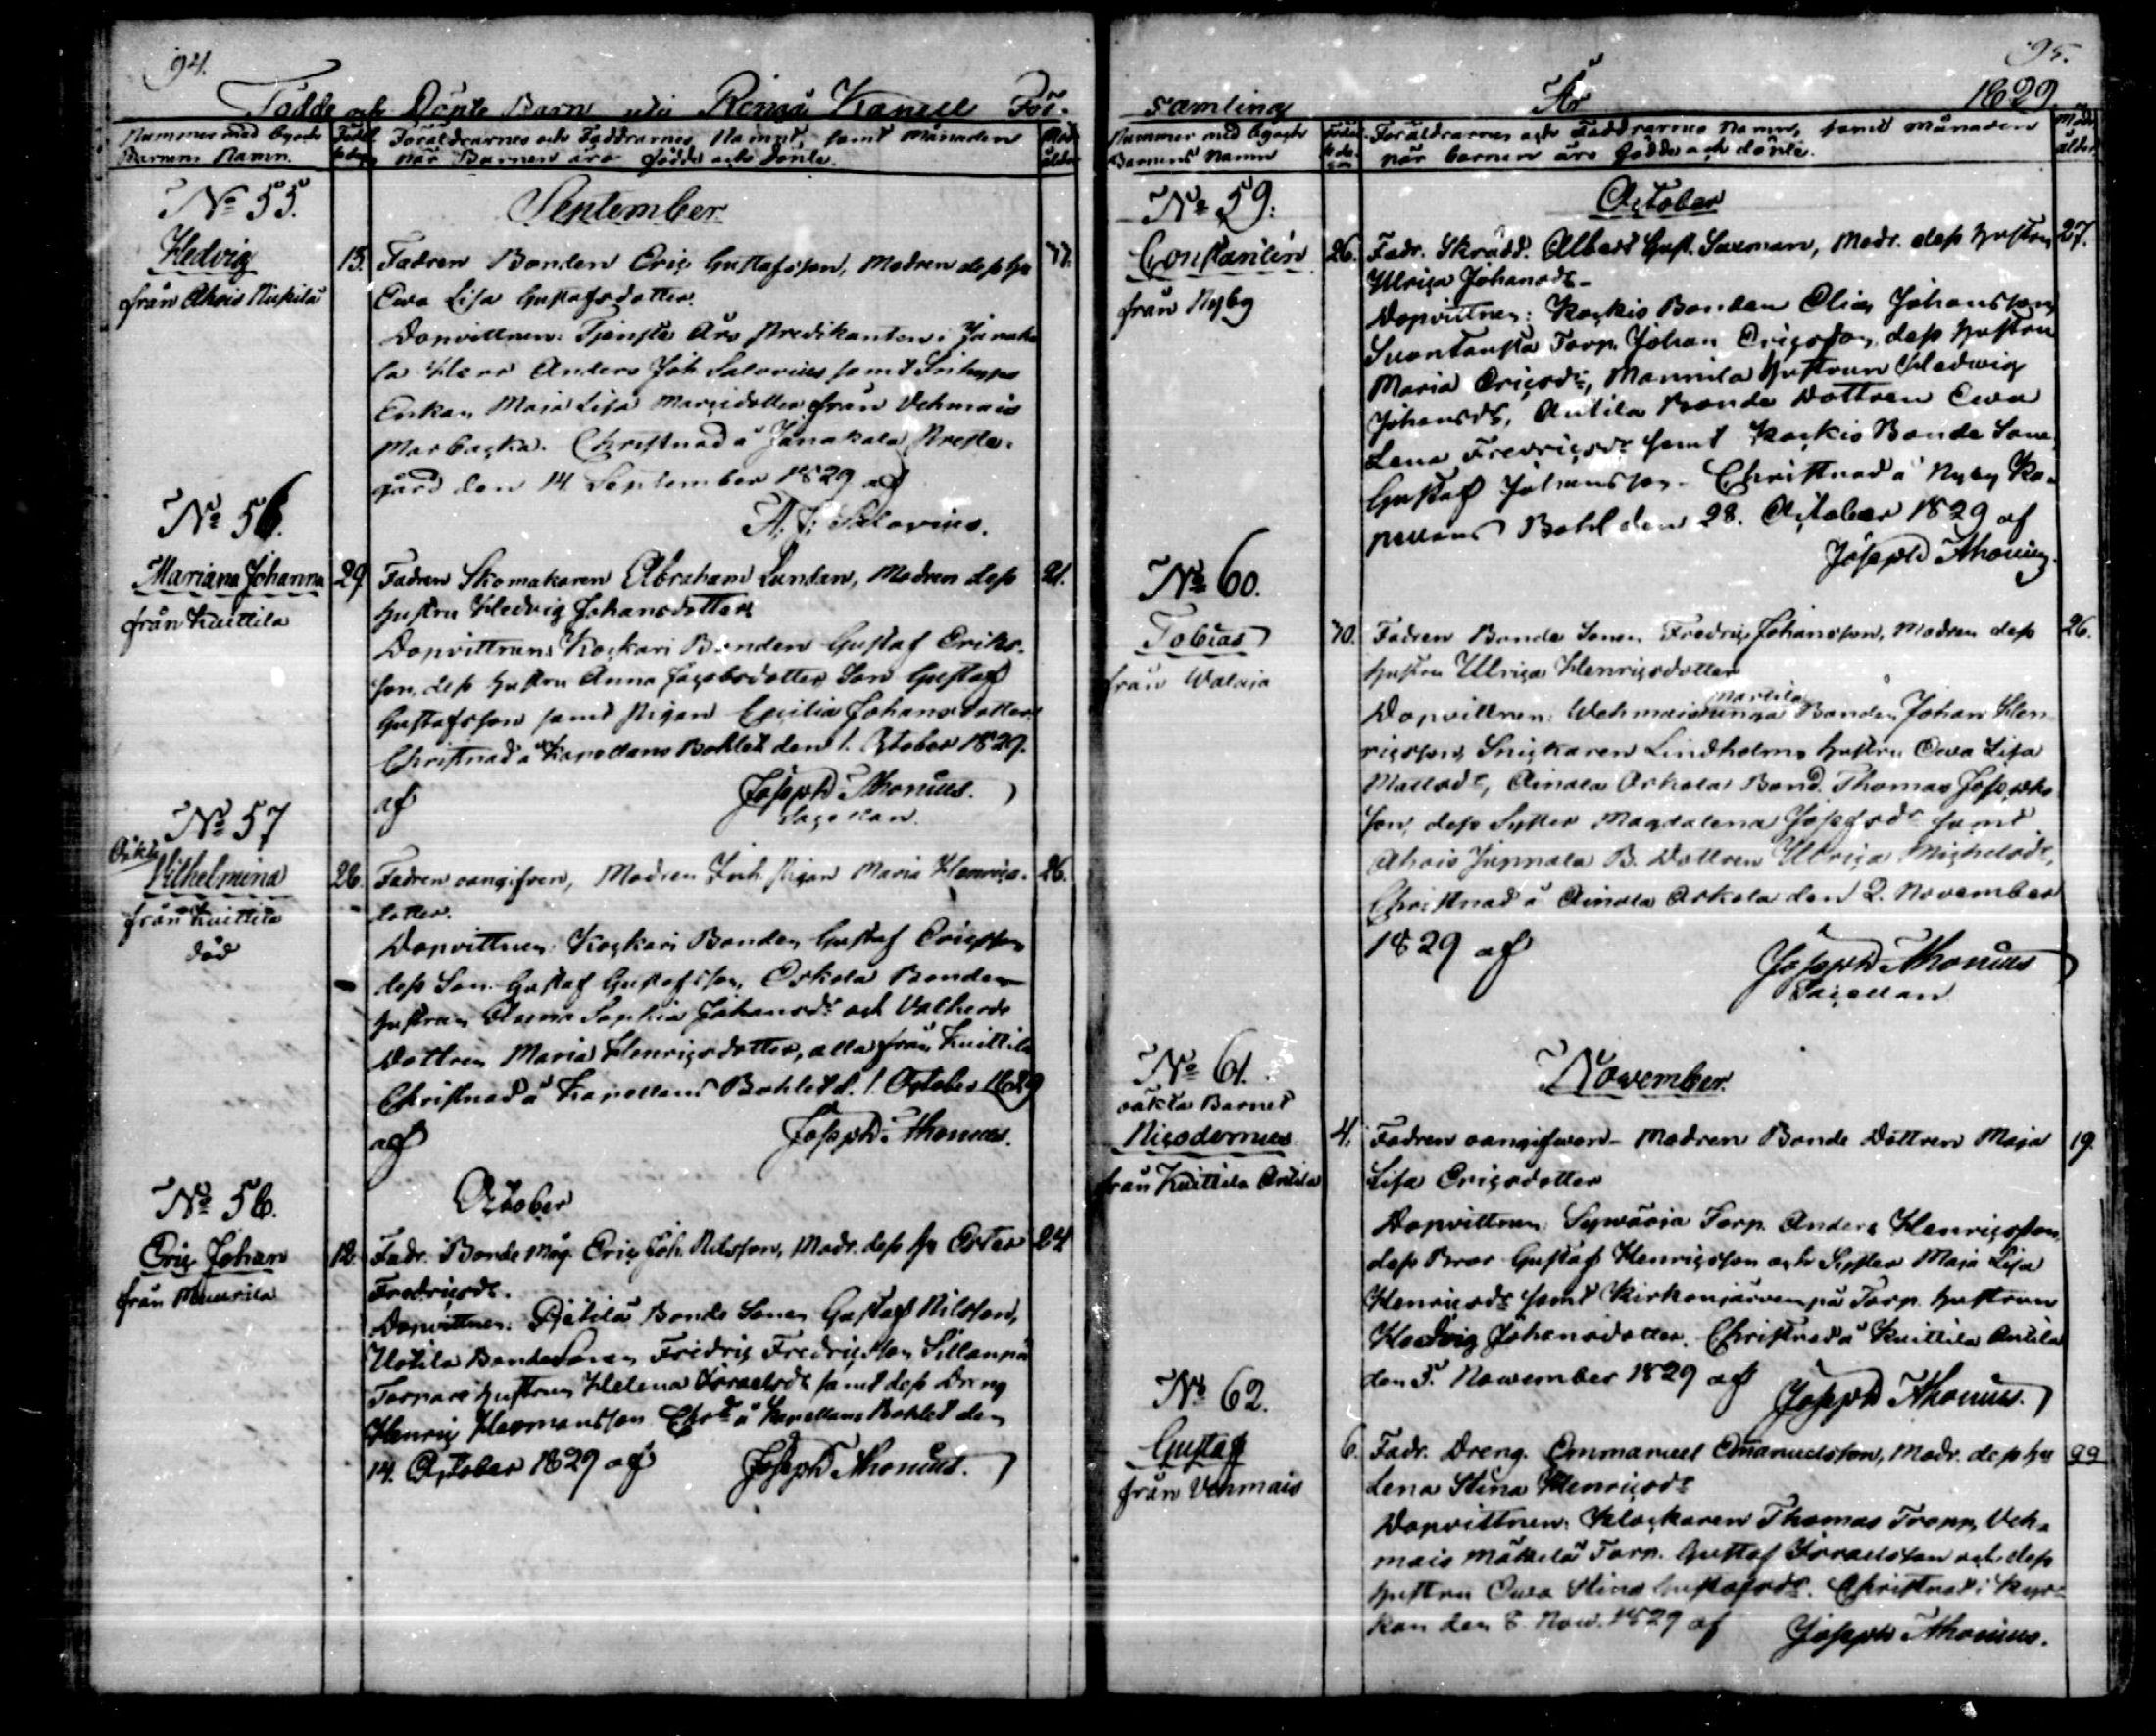 94.
Födde och Döpte Barn uti Rengå Kapell För-
Nummer med byarne
Barnens Namn.
Föräldrarnes och Faddrarnes Namn, samt Månaden
när Barnen äro födde och döpte.
September
No 55.
Hedvig
från Ahois
13. Fadren Bonden Eric Gustafsson, Modren dess hu
Ewa Lisa Gustafsdotter.
Dopvittnen: Tjenste Års Predikanten i Janaka
la Herr Anders Joh. Salovius samt
Enkan Maja Lisa från Vehmais
Marbacka. Christnad å Janakala Preste-
gård den 14 September 1829 af
A. J. Salovius.
No 56.
Mariana Johanna
från Kuittila
29 Fadren Skomakaren Abraham Lundan, Modren dess 21.
hustru Hedvig Johansdotter
Dopvittnen Kockari Bonden Gustaf Eriks-
son, dess hustru Anna Jacobsdotter Son Gustaf
Gustafsson samt Pigan Cecilia Johansdotter
Christnad å Kapellans Bohlet den 1. October 1829.
af Joseph Thonius.
Sacellan.
No 57
Oäkta
Vilhelmina
från Kuittila
död
28. Fadren oangifven, Modren Inh. Pigan Maria Henrics- 26.
dotter.
Dopvittnen: Kockari Bonden Gustaf Ericsson
dess Son Gustaf Gustafsson, Erkola Bonden
hustrun Anna Sophia Johansdr och
Dottren Maria Henricsdotter, alla från Kuittila
Christnad å Kapellans Bohlet d. 1. October 1829
af Joseph Thonius.
October
No 58.
Eric Johan
från
12. Fadr. Bonde Måg Eric Joh. Nilsson, Modr. dess hu Ester 24
Fredricsdr.
Dopvittnen: Pietilä Bonde Sonen Gustaf Nilsson,
Uotila Bondesonen Fredric Fredricsson Sillanpä
Torpare hustrun Helena Israelsdr samt dess Dreng
Henric Hermansson Chrd å Kapellans Bohlet den
14. October 1829 af Joseph Thonius.
95.
samling År 1829.
Nummer med byarne
Barnens Namn
Föräldrarnes och Faddrarnes Namn, samt Månaden
när barnen äro födde och döpte.
October
No 59.
Constantin
från Nyby
26. Fadr. Skrädd. Albert Gust. Saxman, Modr. dess hustru 27.
Ulrica Johansdr
Dopvittnen: Kockis Bonden Elias Johansson
Suontausta Torp. Johan Ericsson, dess hustru
Maria Ericsdr, Mannila hustrun Hedwig
Johansdr, Antila Bonde Dottren Ewa
Lena Fredricsdr samt Kockis Bonde Son
Gustaf Johansson. Christnad å Nyby Ka-
pellans Bohl den 28. October 1829 af
Joseph Thonius
No 60.
Tobias
från
30. Fadren Bonde Sonen Fredric Johansson, Modren dess 26.
hustru Ulrica Henricsdotter
Martila
Dopvittnen: Wehmais Bonden Johan Hen-
ricsson, Snickaren Lindholms hustru Ewa Lisa
Mattsdr, Ainola Arkola Bond. Thomas Josephs-
son, dess Syster Magdalena Josefsdr samt
Ahois Juppala B. Dottren Ulrica Michelsdr,
Christnad å Ainola Arkola den 2. November
1829 af Joseph Thonius
Sacellan
November.
No 61.
oäkta Barnet
Nicodemus
från Kuittila Antila
4. Fadren oangifwen - Modren Bonde Dottren Maja 19.
Lisa Ericsdotter
Dopvittnen: Syväoja Torp. Anders Henricsson,
dess Bror Gustaf Henricsson och Syster Maja Lisa
Henricsdr samt Kirkonjärvenpä Torp. hustrun
Hedvig Johansdotter. Christnad å Kuittila Antila
den 5. November 1829 af Joseph Thonius.
No 62.
Gustaf
från Vehmais
6. Fadr. Dreng. Emmanuel Emanuelsson, Modr. dess hu
Lena Stina Henricsdr
Dopvittnen: Klockaren Thomas Tropp, Veh-
mais Mäkelä Torp. Gustaf Israelsson och dess
hustru Ewa Stina Gustafsdr. Christnad i Kyr-
kan den 8. Nov. 1829 af Joseph Thonius.